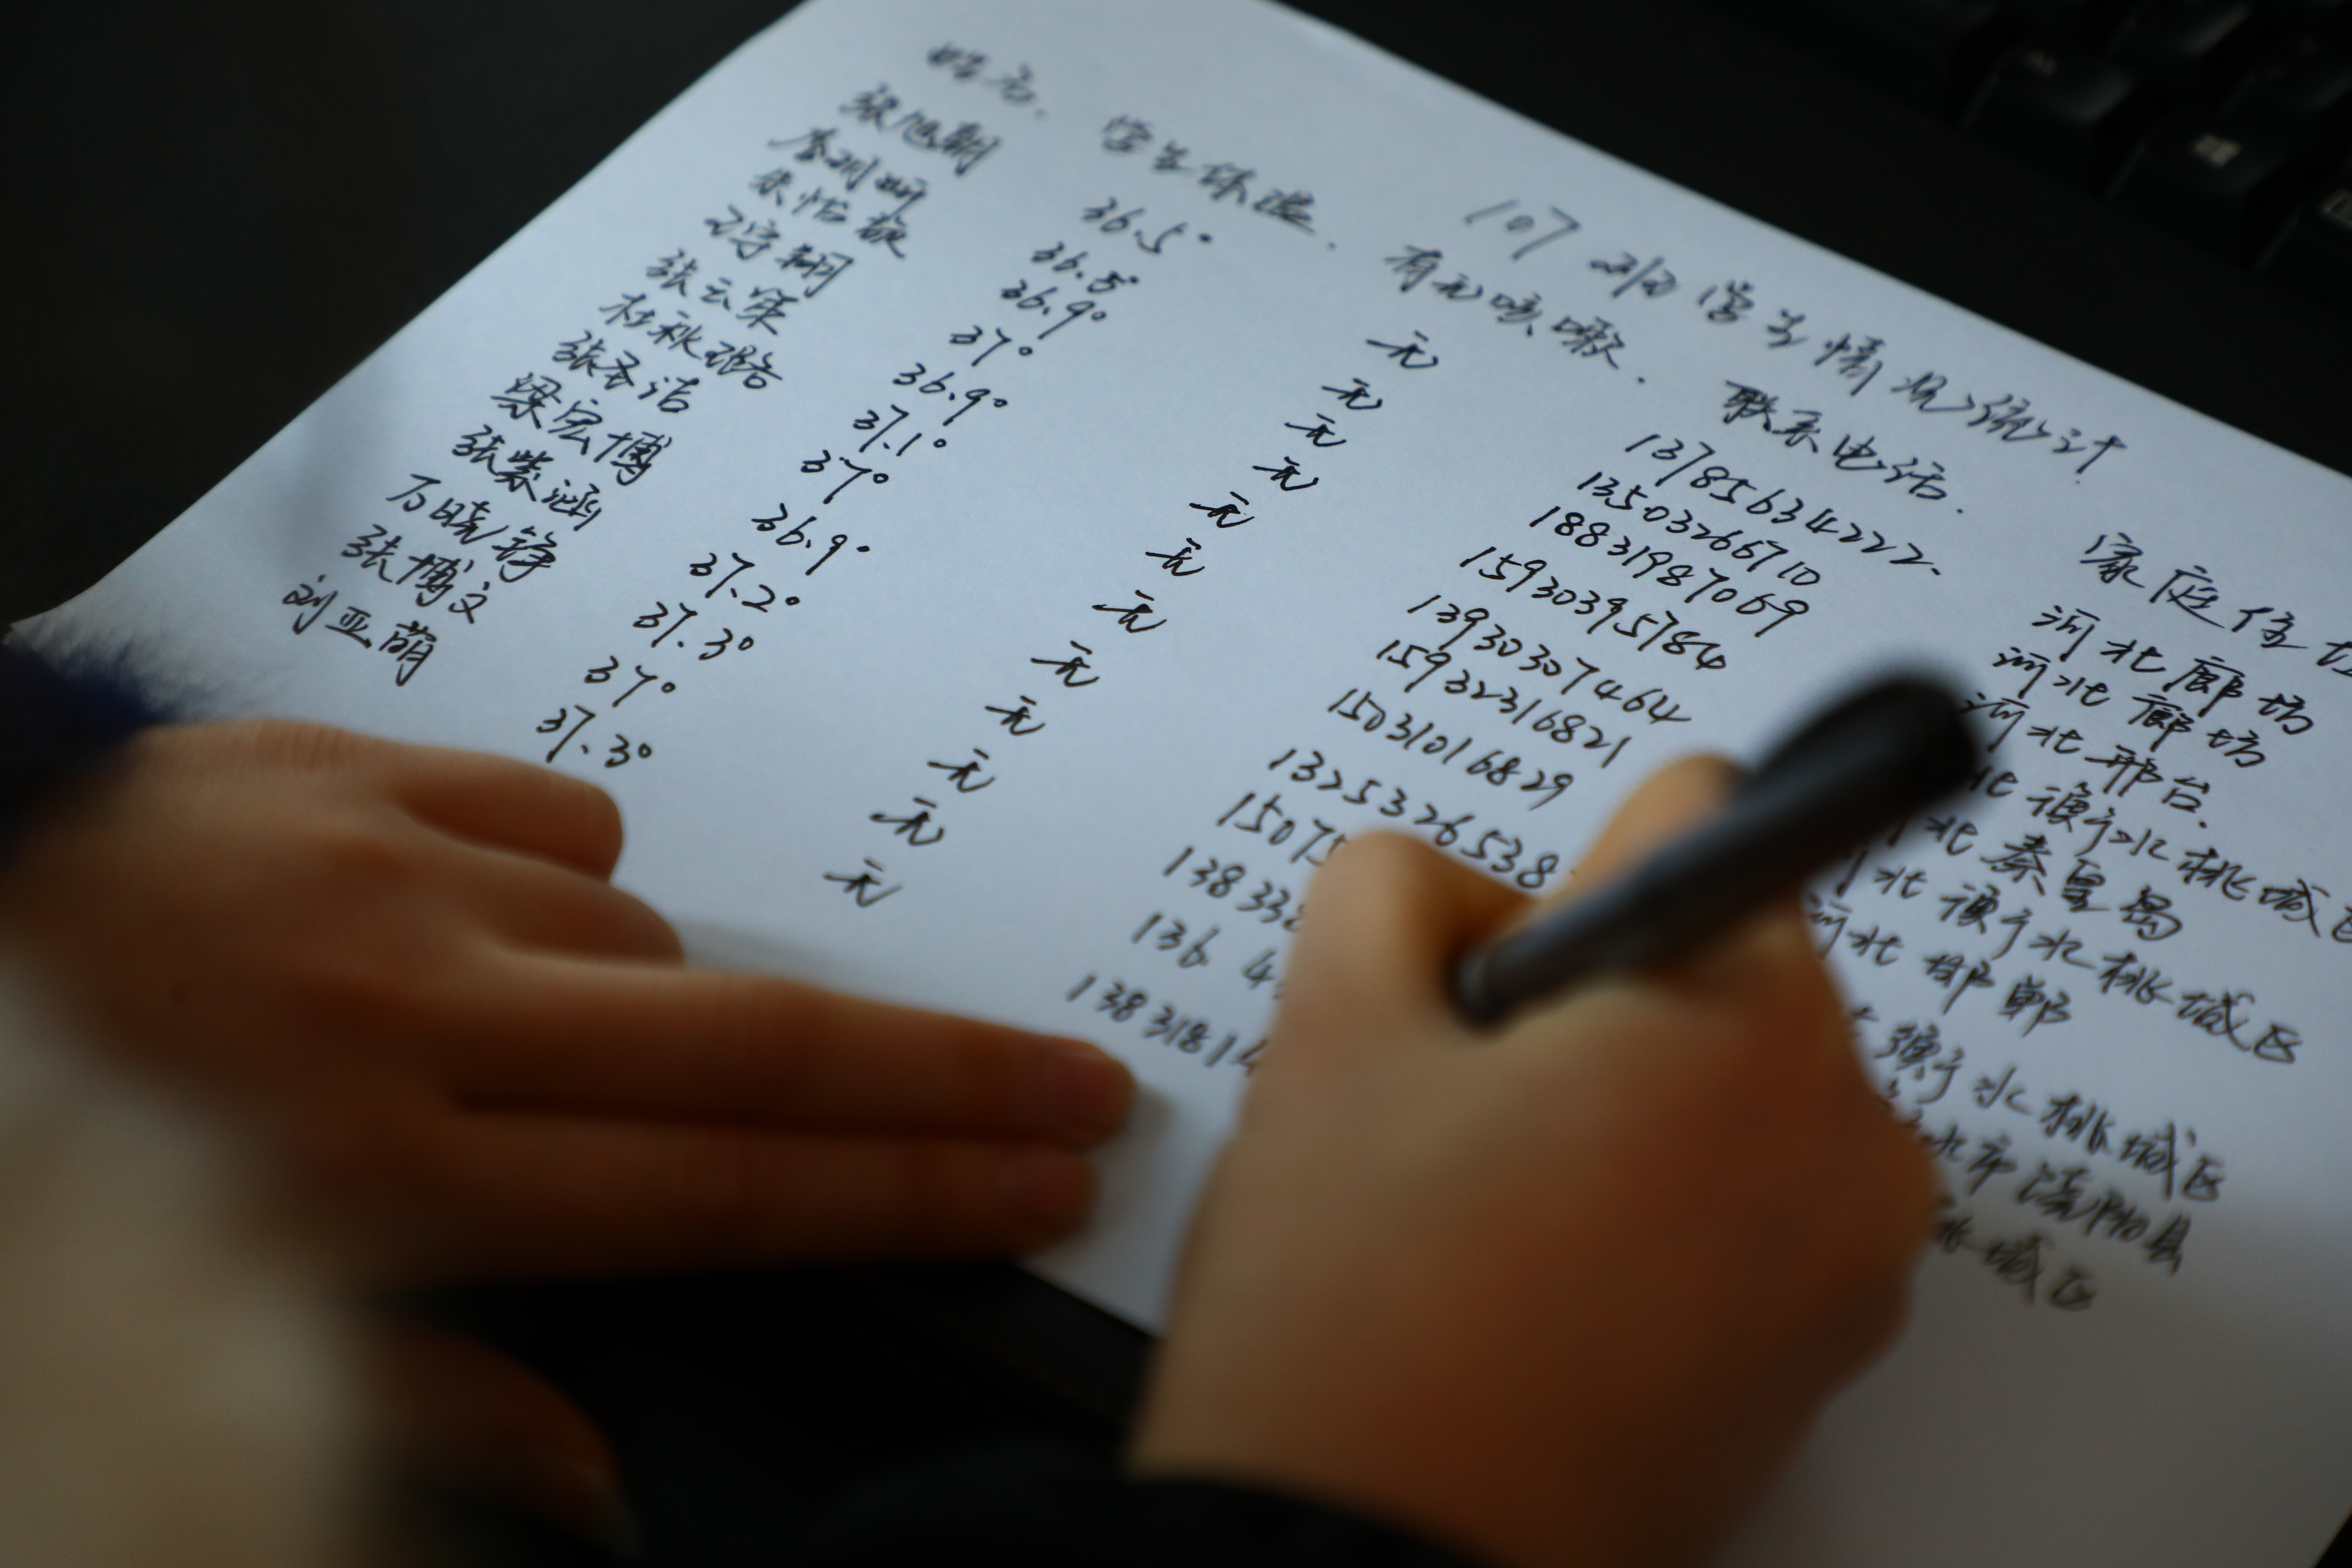 107班学生情况统计
姓名. 学生体温. 有无咳嗽. 联系电话. 家庭住址
张旭朝 36.5° 无 13785634222. 河北廊坊
36.5° 无 13503266710 河北廊坊
朱怡璇 36.9° 无 18831987069 河北邢台.
37° 无 15930395784 北衡水桃城区
张云策 36.9° 无 13930307464 北秦皇岛
杜秋璐 37.1° 无 15932316821 河北衡水桃城区
张圣洁 37° 无 15031016829 河北邯郸
梁宏博 36.9° 无 13253326538 衡水桃城区
张紫涵 37.2° 无 15075 水市饶阳县
万晓铮 37.3° 无 13833 桃城区
张博文 37° 无 136 4
刘亚萌 37.3° 无 1383181